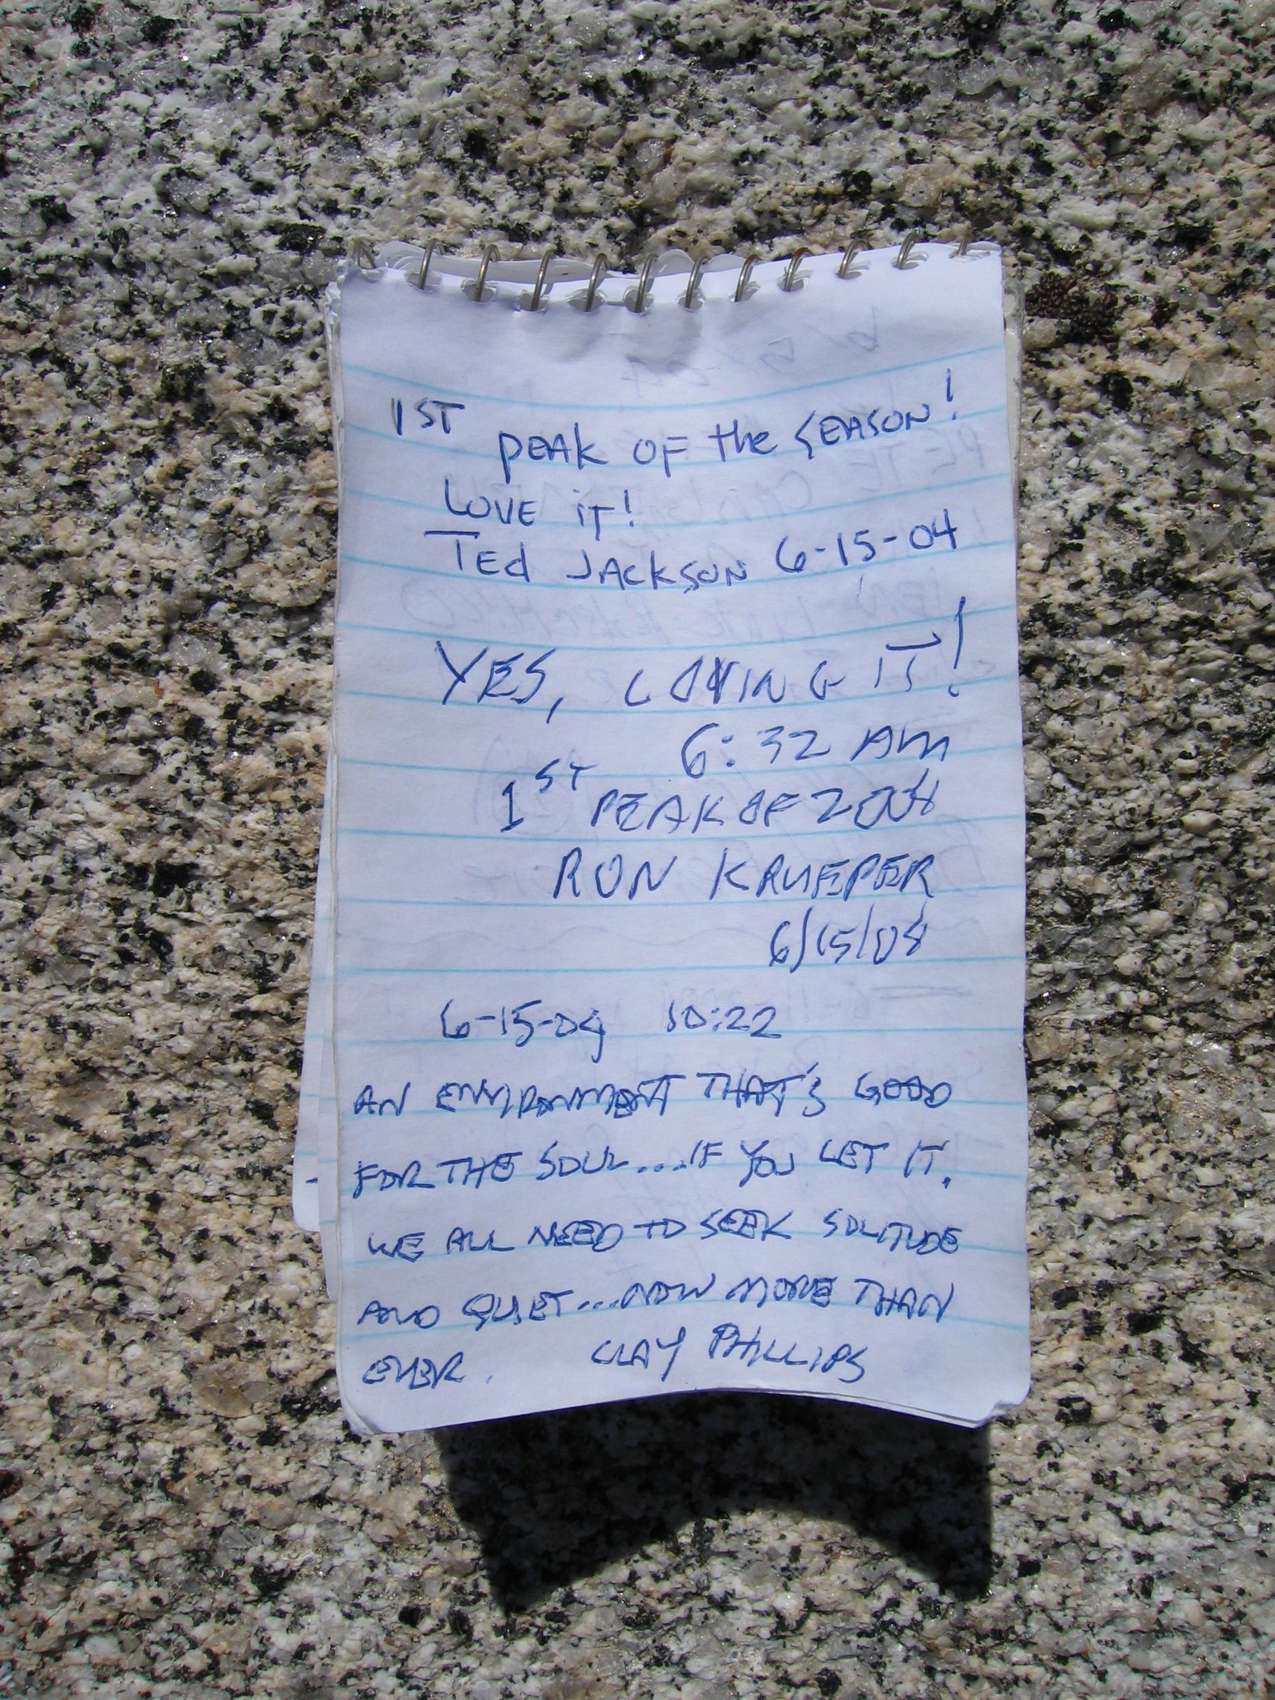 1ST PEAK OF the SEASON!
LOVE iT!
TEd JACKSON 6-15-04
YES, LOVING IT!
6:32 AM
1ST PEAK OF 2004
RON KRUEPER
6/15/04
6-15-04 10:22
AN ENVIRONMENT THAT'S GOOD
FOR THE SOUL...IF YOU LET IT.
WE ALL NEED TO SEEK SOLITUDE
AND QUIET...NOW MORE THAN
EVER. CLAY PHILLIPS